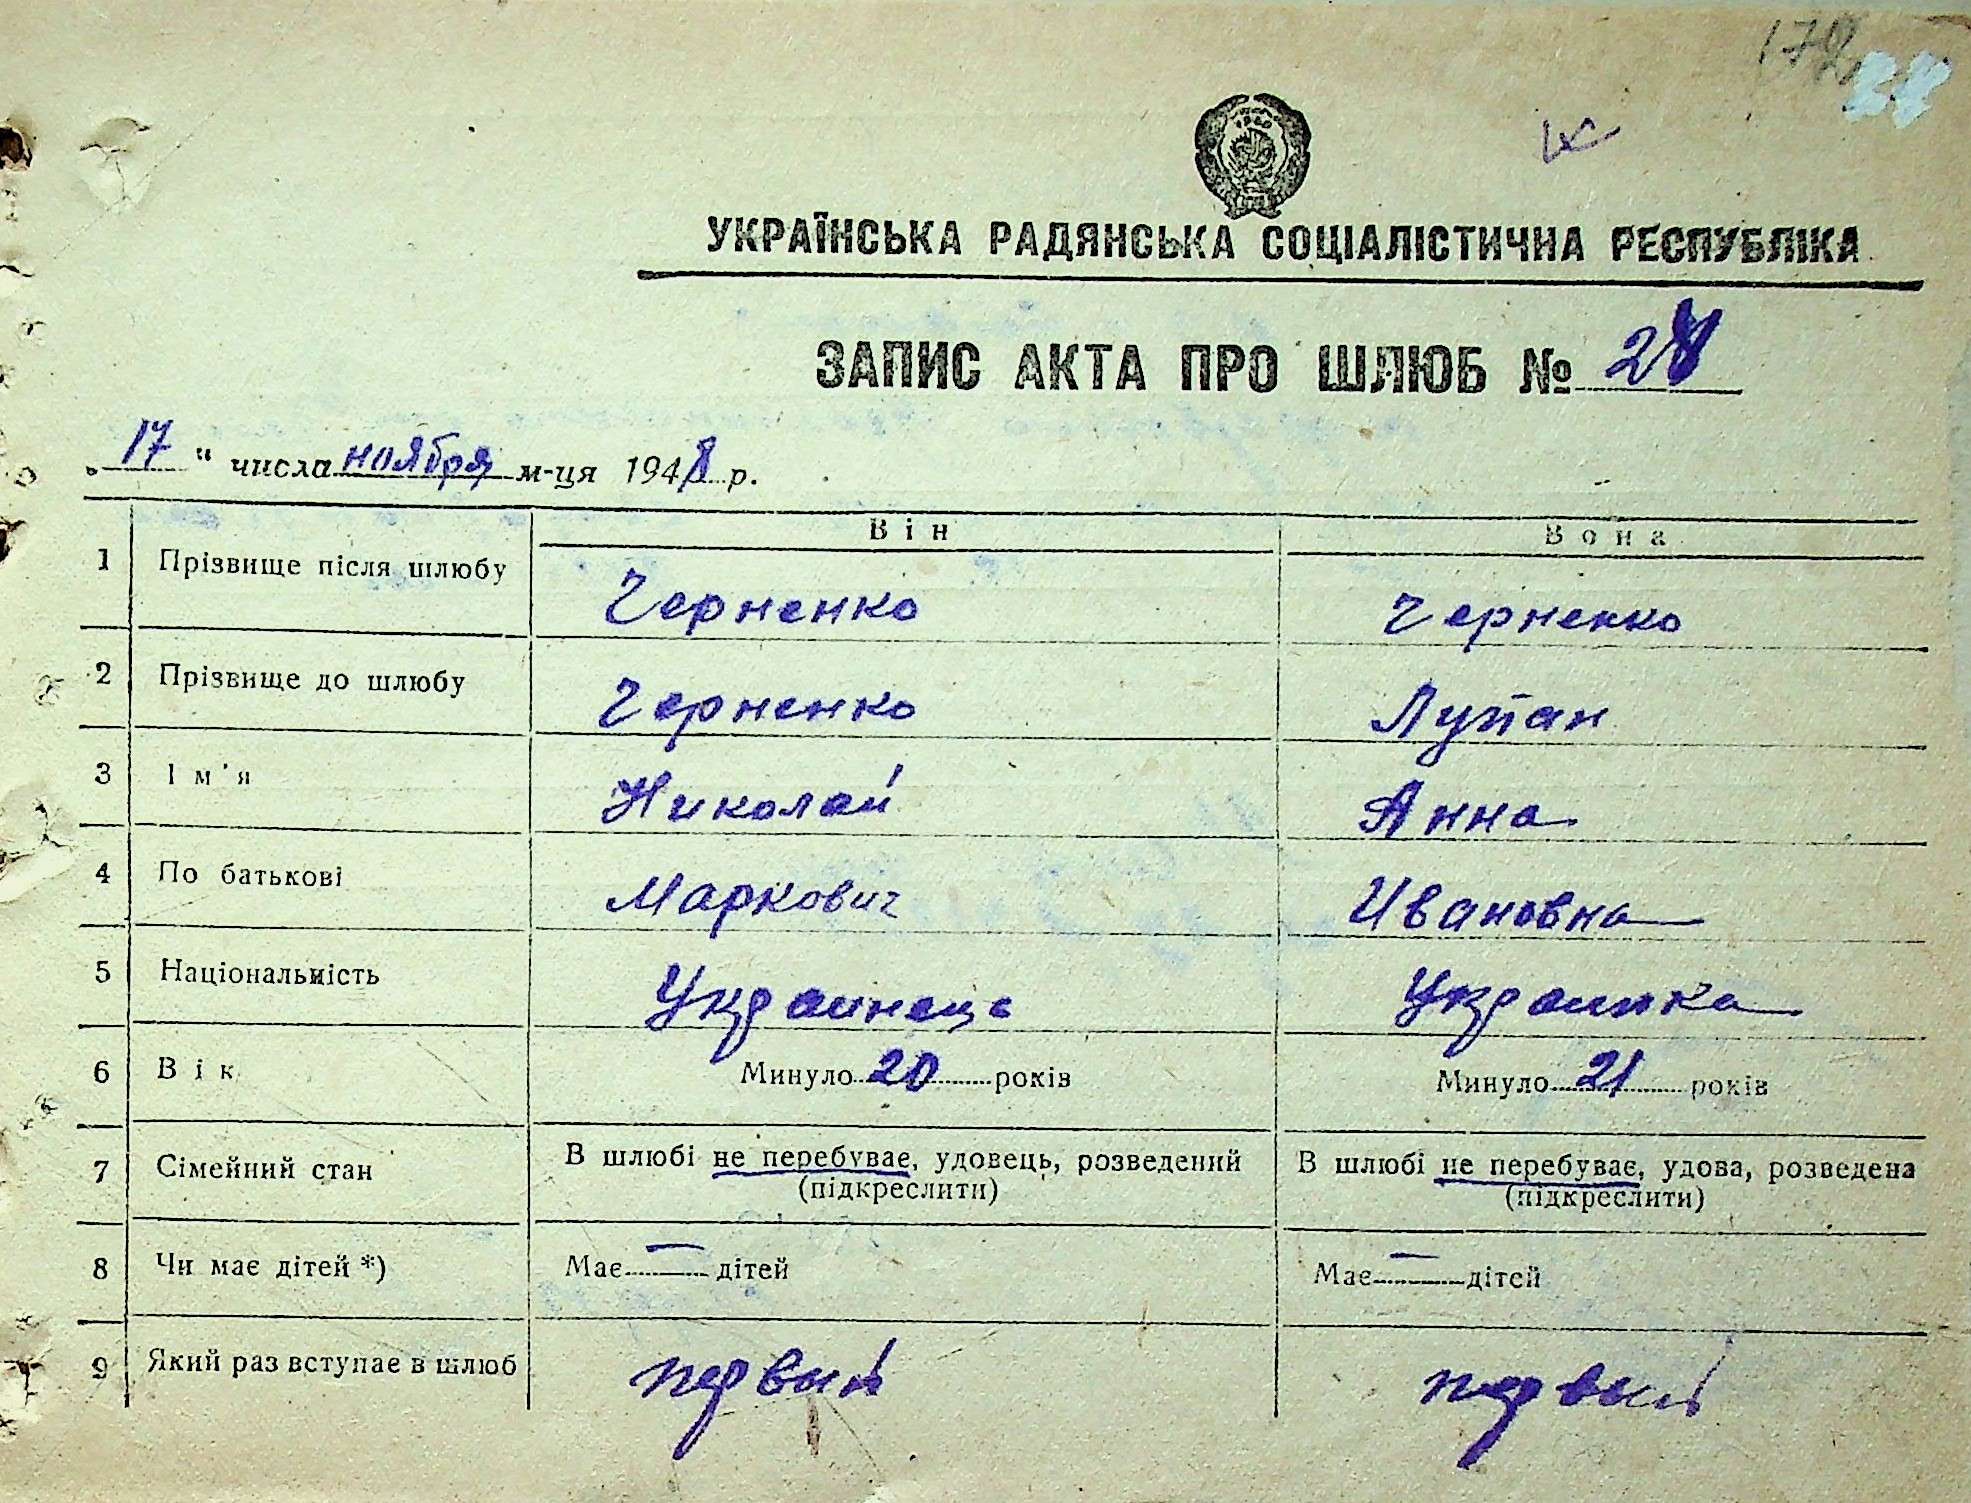 УКРАЇНСЬКА РАДЯНСЬКА СОЦІАЛІСТИЧНА РЕСПУБЛІКА
ЗАПИС АКТА ПРО ШЛЮБ №
„17" числа ноября м-ця 1948 р.
Він Вона
1 Прізвище після шлюбу Черненко Черненко
2 Прізвище до шлюбу Черненко Лупан
3 Ім'я Николай Анна
4 По батькові Маркович Ивановна
5 Національність Украинець Украинка
6 Вік Минуло 20 років Минуло 21 років
7 Сімейний стан В шлюбі не перебуває, удовець, розведений В шлюбі не перебуває, удова, розведена
(підкреслити) (підкреслити)
8 Чи має дітей *) Має — дітей Має — дітей
9 Який раз вступає в шлюб первый первый